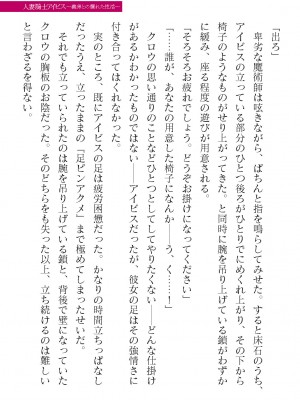 人妻騎士アイビス〜義弟との爛れた性活〜
「出ろ」
卑劣な魔術師は呟きながら、ぱちんと指を鳴らしてみせた。すると床石のうち、
アイビスの立っている部分のひとつ後ろがひとりでにめくれ上がり、その下から
椅子のようなものがせり上がってきた。と同時に腕を吊り上げている鎖がわずか
に緩み、座る程度の遊びが用意される。
「そろそろお疲れでしょう。どうぞお掛けになってください」
「……誰が、あなたの用意した椅子になんか……う、く……！」
クロウの思い通りのことなどひとつとしてしてやりたくない――どんな仕掛け
があるかわかったものではない――アイビスだったが、彼女の足はその強情さに
付き合ってはくれなかった。
実のところ、既にアイビスの足は疲労困憊だった。かなりの時間立ちっぱなし
だったうえ、立ったままの「足ピンアクメ」まで極めてしまったせいだ。
それでも立っていられたのは腕を吊り上げている鎖と、背後で壁になっていた
クロウの胸板のお陰だった。そのどちらをも失った以上、立ち続けるのは難しい
と言わざるを得ない